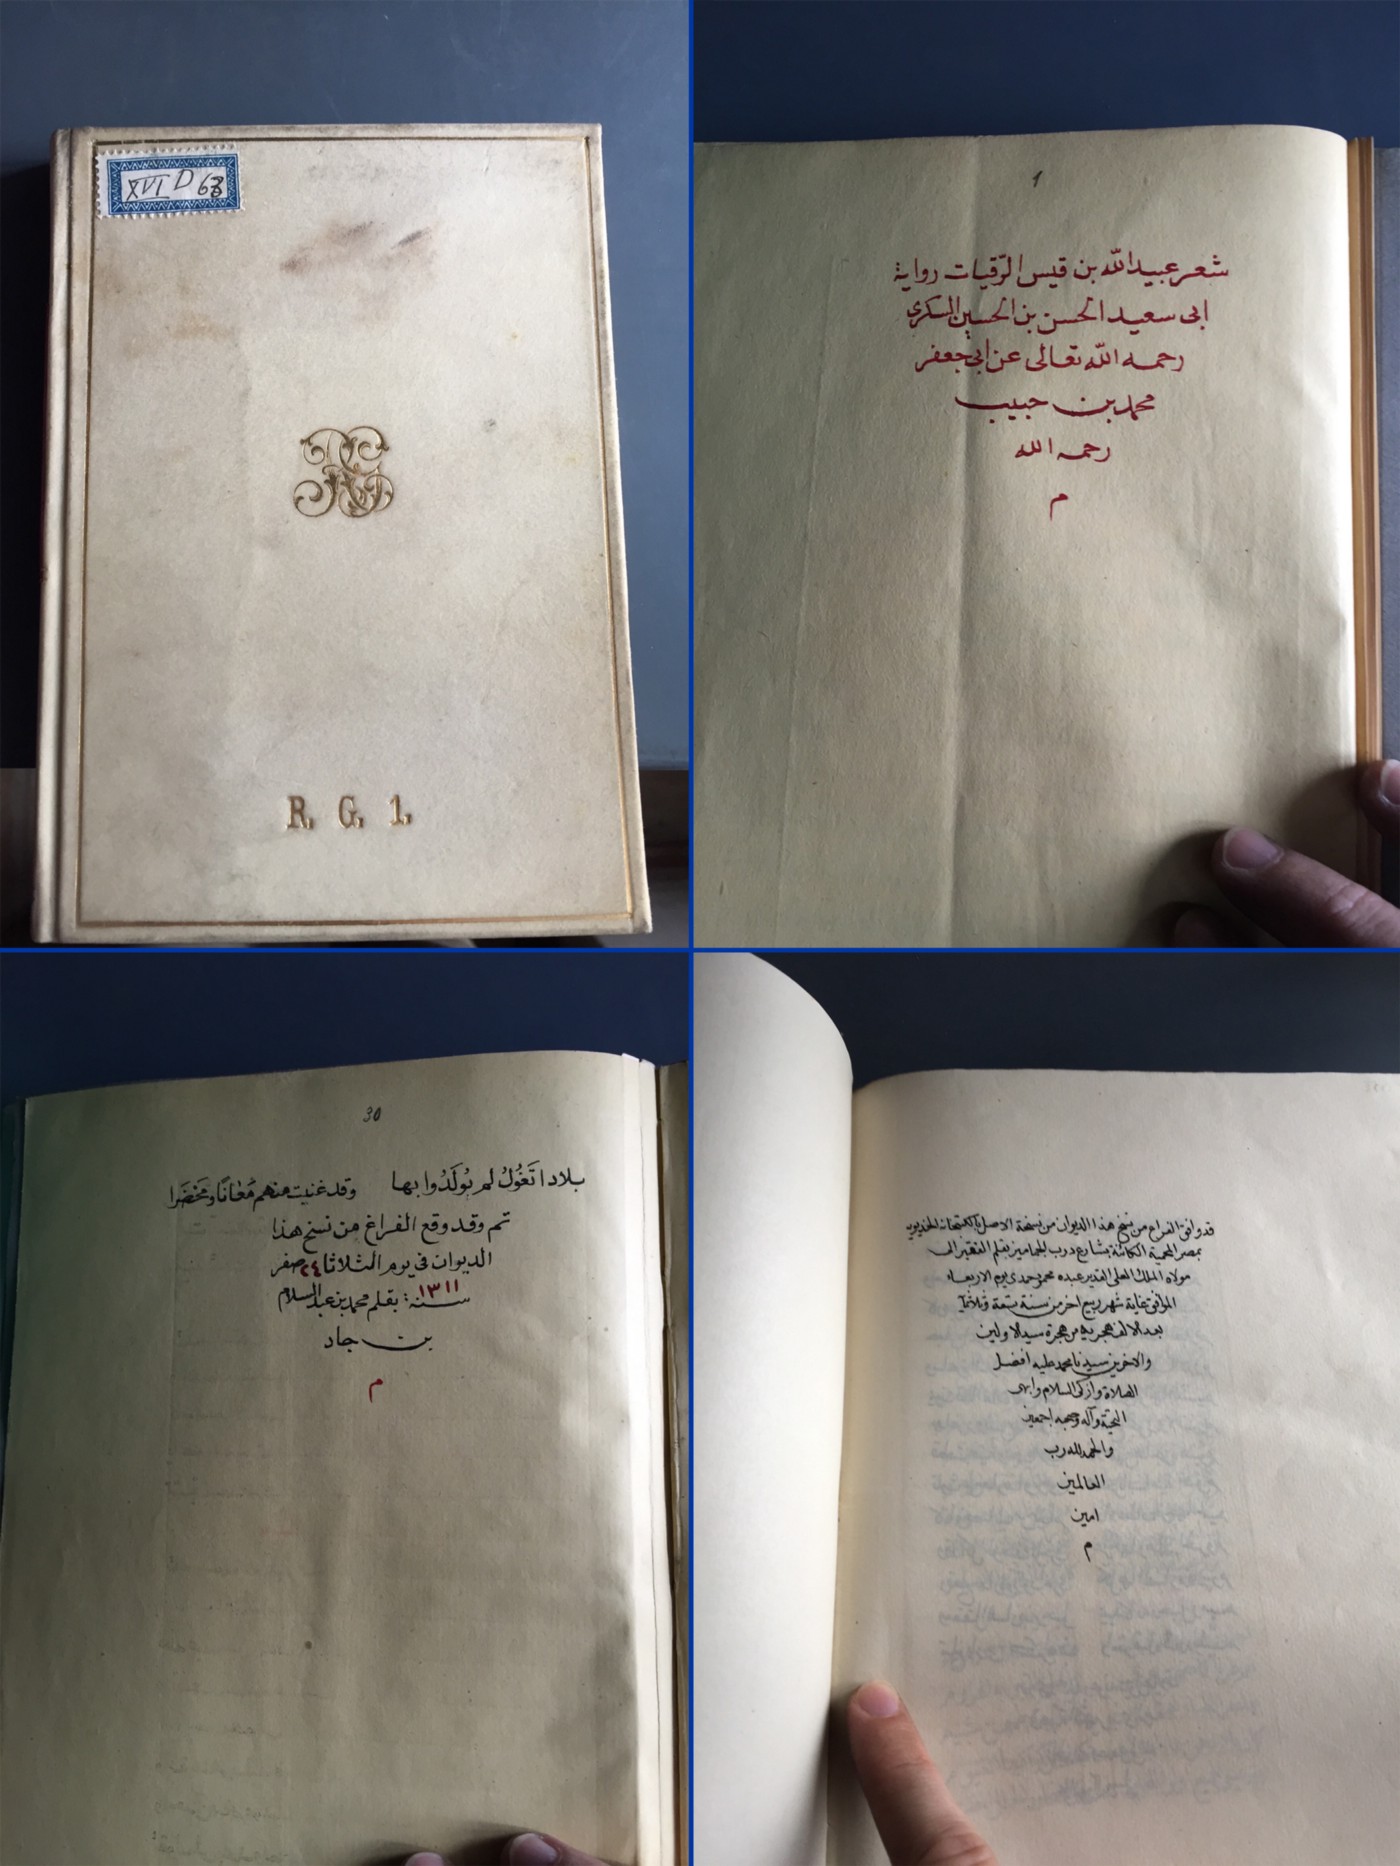 XVI D 63
R. G. 1.
1
شعر عبيد الله بن قيس الرّقيات رواية
ابى سعيد الحسن بن الحسين السكرى
رحمه الله تعالى عن ابى جعفر
محمد بن حبيب
رحمه الله
م
30
بلادا تَغُولُ لم يُولَدُوا بها وقد غنيت منهم مَعَانًا ومَحْضَرا
تم وقد وقع الفراغ من نسخ هذا
الديوان في يوم الثلاثا ٢٤ صفر
سنة ١٣١١ بقلم محمد بن عبد السلام
بن جاد
م
قد وافق الفراغ من نسخ هذا الديوان من نسخة الاصل بالكتبخانة الخديوية
بمصر المحمية الكائنة بشارع درب الجماميز بقلم الفقير الى
مولاه الملك العلى القدير عبده محمود حمدى يوم الاربعاء
الموافق غاية شهر ربيع اخر من سنة تسعة وثلاثمأ
بعد الالف هجريه من هجرة سيد الاولين
والاخرين سيدنا محمد عليه افضل
الصلاة وازكى السلام وابهى
التحية وآله وصحبه اجمعين
والحمد لله رب
العالمين
امين
م